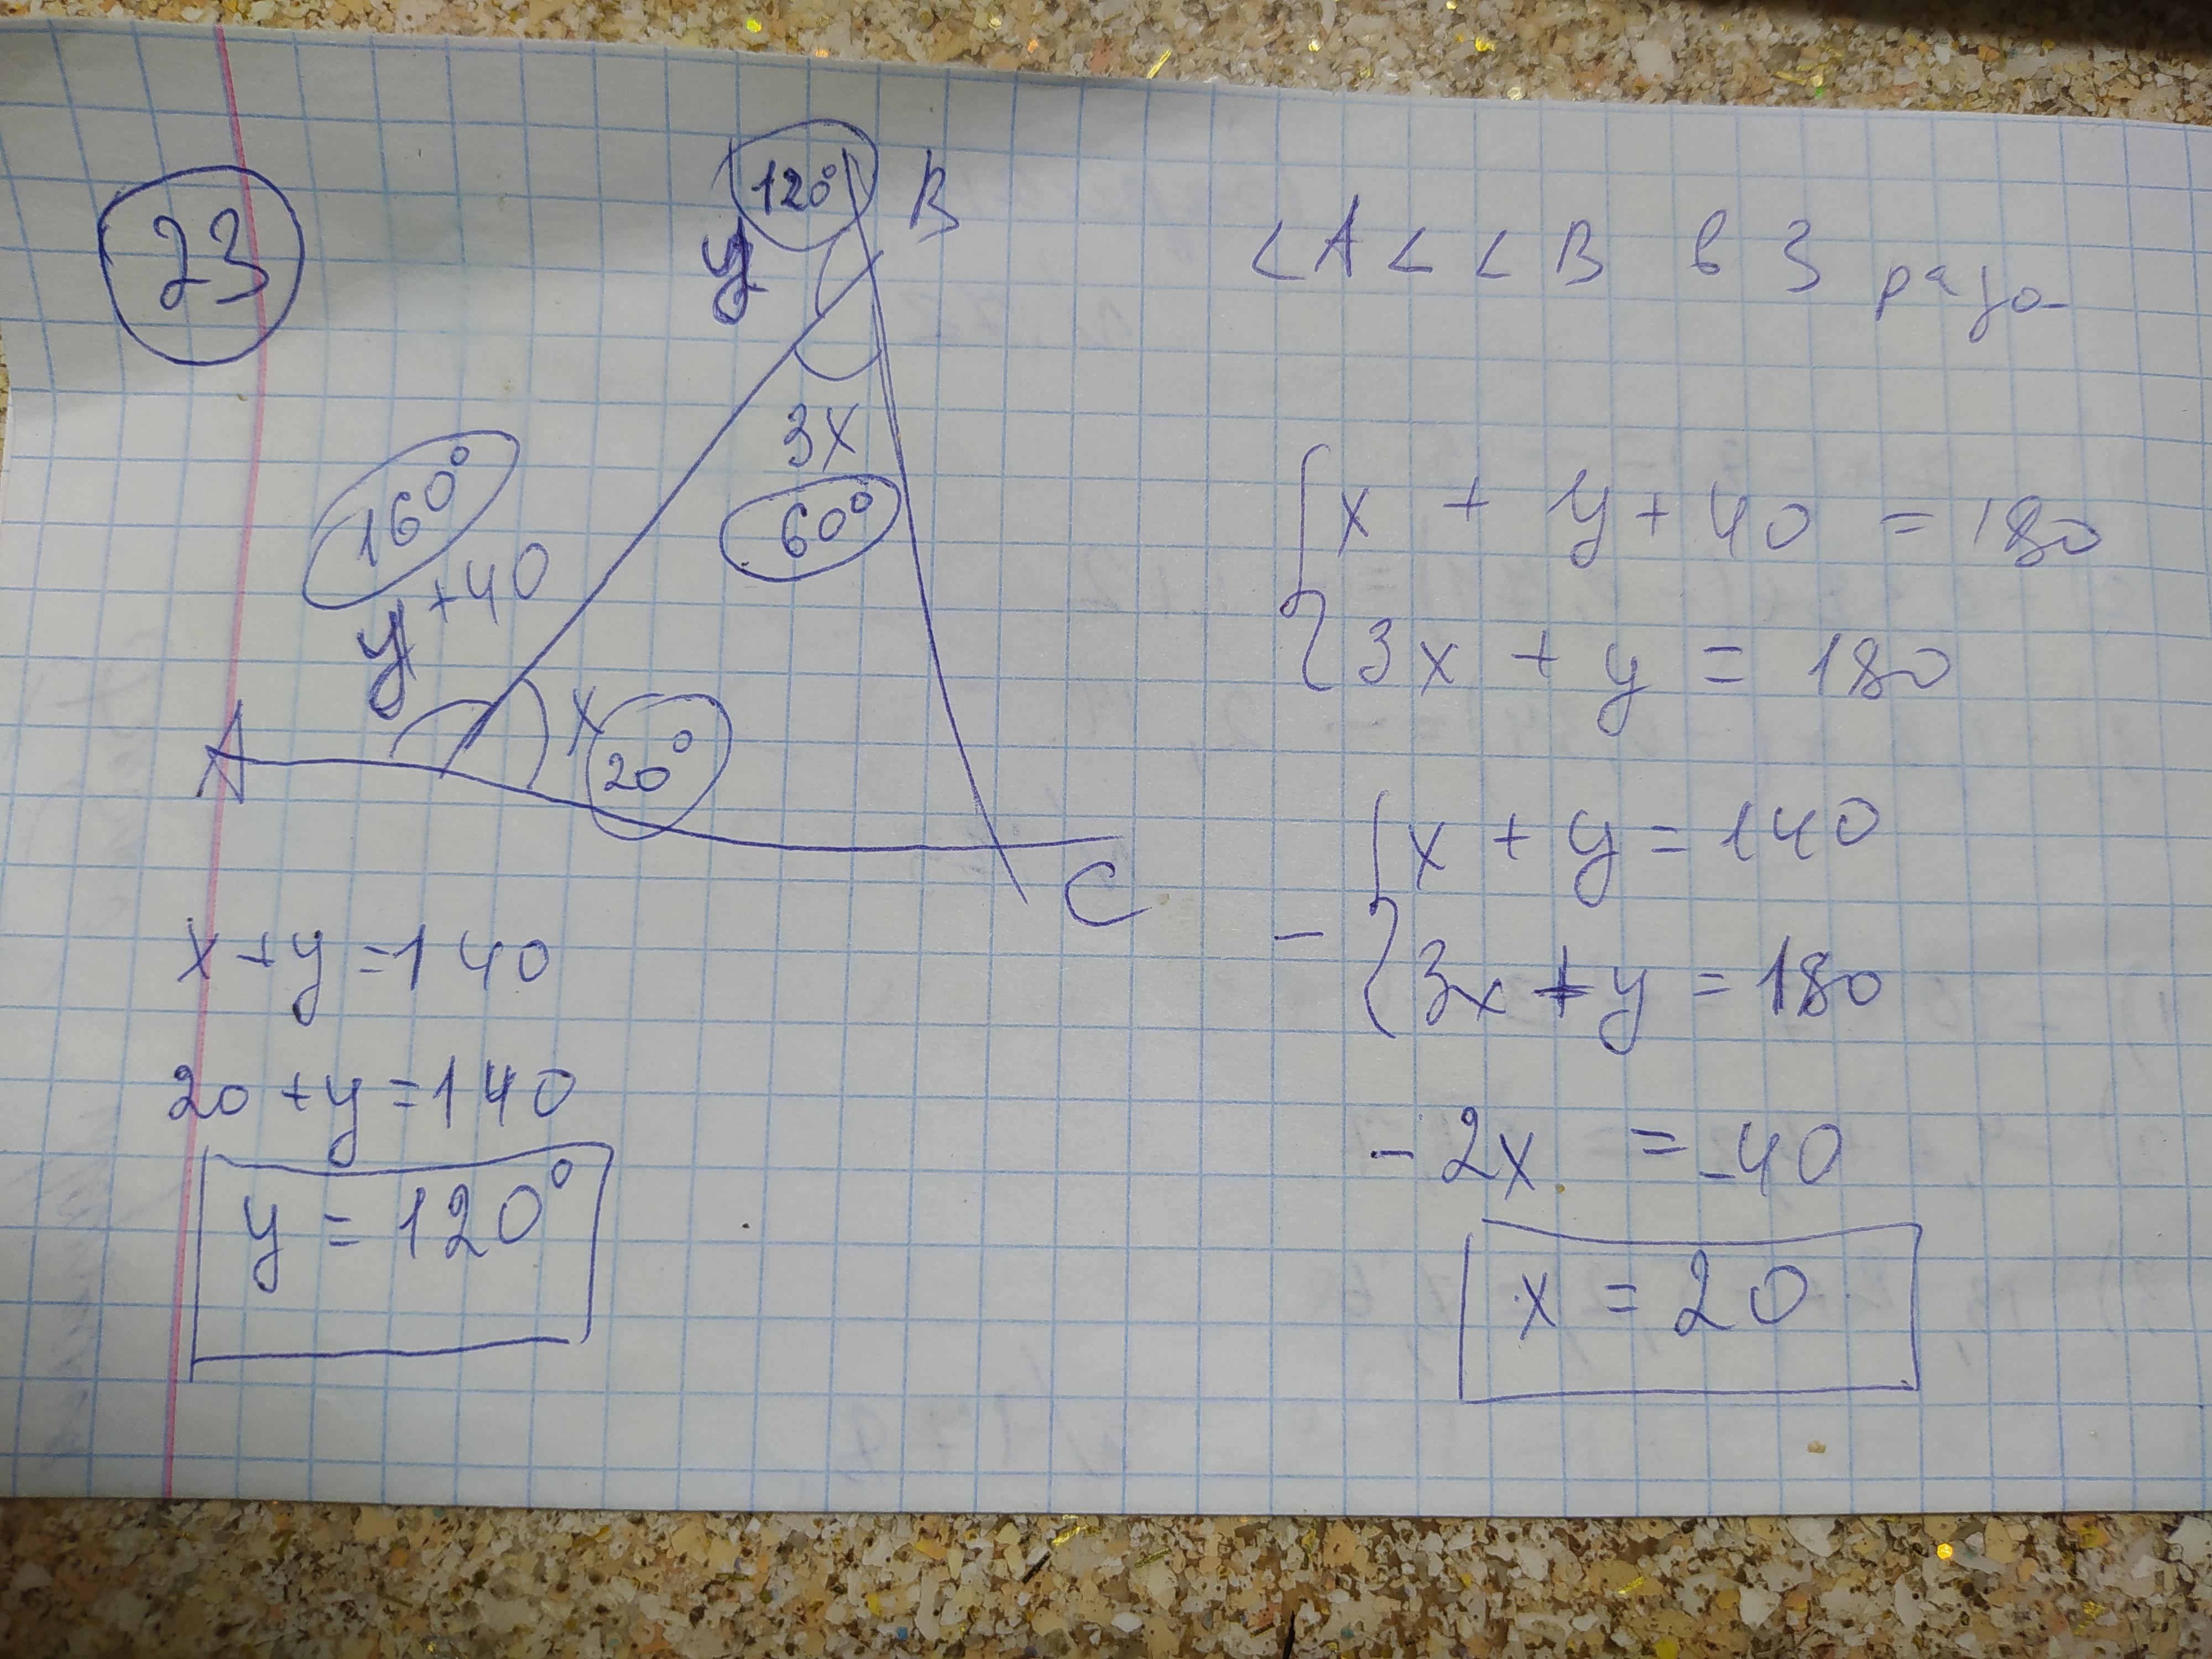 23
120°
B
y
3x
60°
160°
y+40
A
x
20°
C
<A < <B в 3 раза
x + y + 40 = 180
3x + y = 180
x + y = 140
- 3x + y = 180
-2x = -40
x = 20
x + y = 140
20 + y = 140
y = 120°